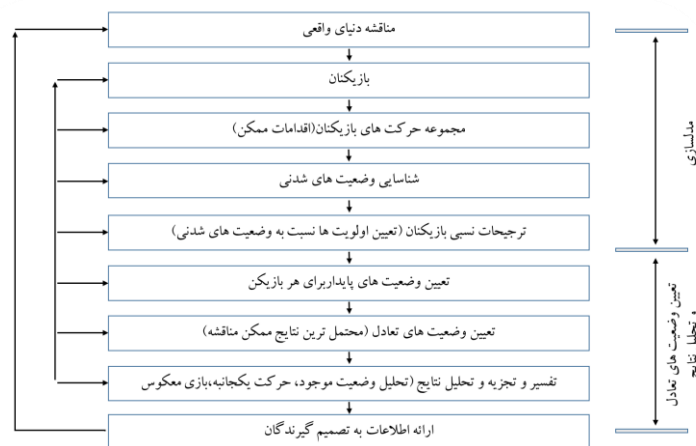 مناقشه دنیای واقعی
بازیکنان
مجموعه حرکت های بازیکنان(اقدامات ممکن)
شناسایی وضعیت های شدنی
ترجیحات نسبی بازیکنان (تعیین اولویت ها نسبت به وضعیت های شدنی)
تعیین وضعیت های پایداربرای هر بازیکن
تعیین وضعیت های تعادل (محتمل ترین نتایج ممکن مناقشه)
تفسیر و تجزیه و تحلیل نتایج (تحلیل وضعیت موجود، حرکت یکجانبه،بازی معکوس
ارائه اطلاعات به تصمیم گیرندگان
مدلسازی
تعیین وضعیت های تعادل
و تحلیل نتایج